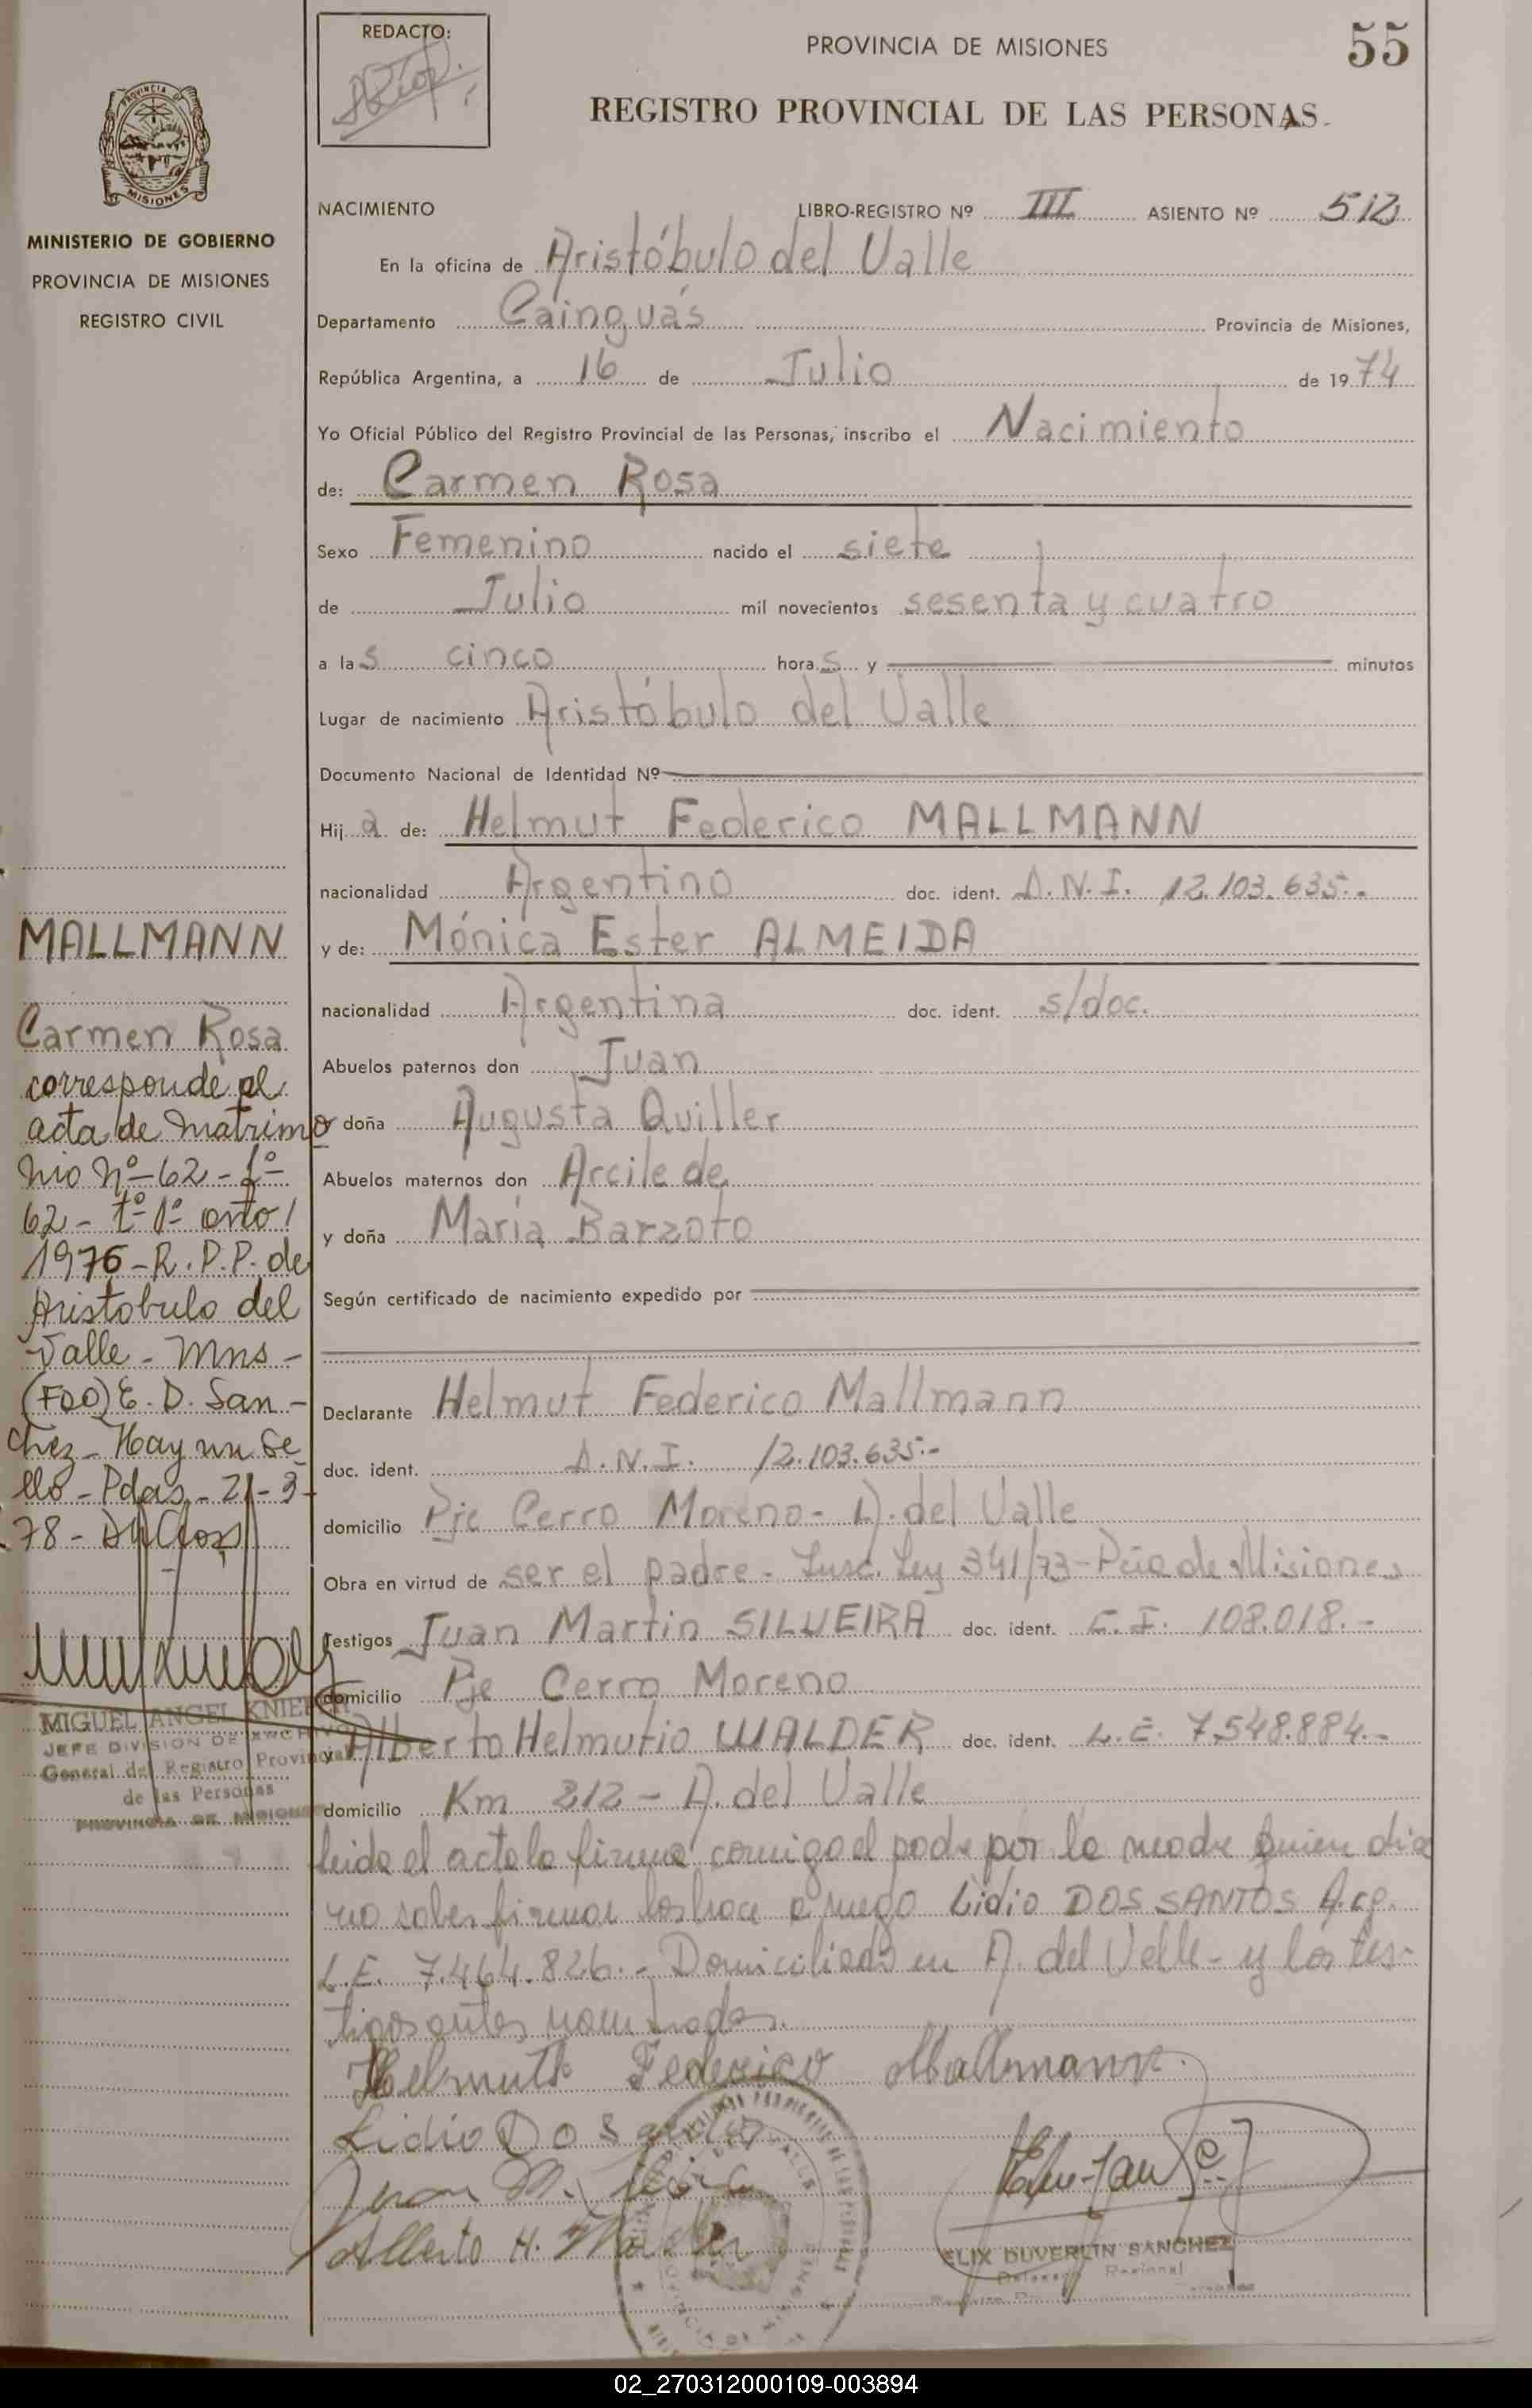 REDACTO:
PROVINCIA DE MISIONES
55
REGISTRO PROVINCIAL DE LAS PERSONAS
PROVINCIA DE
MISIONES
MINISTERIO DE GOBIERNO
PROVINCIA DE MISIONES
REGISTRO CIVIL
NACIMIENTO LIBRO-REGISTRO Nº III ASIENTO Nº 512
En la oficina de Aristóbulo del Valle
Departamento Cainguás Provincia de Misiones,
República Argentina, a 16 de Julio de 1974
Yo Oficial Público del Registro Provincial de las Personas, inscribo el Nacimiento
de: Carmen Rosa
Sexo Femenino nacido el siete
de Julio mil novecientos sesenta y cuatro
a las cinco horas y minutos
Lugar de nacimiento Aristóbulo del Valle
Documento Nacional de Identidad Nº
Hija de: Helmut Federico MALLMANN
nacionalidad Argentino doc. ident. D.N.I. 12.103.635.-
y de: Mónica Ester ALMEIDA
nacionalidad Argentina doc. ident. s/doc.
Abuelos paternos don Juan
doña Augusta Quiller
Abuelos maternos don Arcile de
y doña María Barzoto
Según certificado de nacimiento expedido por
Declarante Helmut Federico Mallmann
doc. ident. D.N.I. 12.103.635.-
domicilio Pje Cerro Moreno - A. del Valle
Obra en virtud de ser el padre - Insc. Ley 341/73 - Pcia de Misiones
Testigos Juan Martin SILVEIRA doc. ident. C.I. 108.018.-
domicilio Pje Cerro Moreno
y Alberto Helmutio WALDER doc. ident. L.E. 7.548.884.-
domicilio Km 212 - A. del Valle
leida el acta la firma comigo el padre por la madre quien dice
no saber firmar los hace a ruego Lidio DOS SANTOS Arg.
L.E. 7.464.826.- Domiciliado en A. del Valle - y los tes-
tigos antes nombrados.
Helmuth Federico Mallmann
Lidio Do Santo
Juan M.
Alberto H.
ELIX DUVERLIN SANCHEZ
Regional
MALLMANN
Carmen Rosa
corresponde al
acta de Matrimo
nio nº-62-fº-
62-tº-1º-año/
1976-R.P.P. de
Aristobulo del
Valle-Mns-
(FDO) E. D. San-
chez-Hay un se
llo-Pdas-21-3-
78-
MIGUEL ANGEL
JEFE DIVISION DE ARCHIVO
General del Registro Provincial
de las Personas
PROVINCIA DE MISIONES
02_270312000109-003894